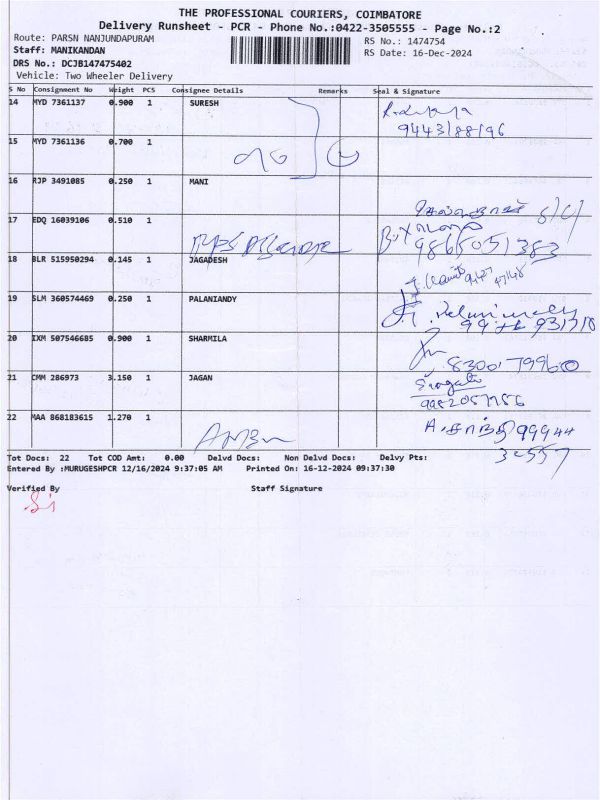 THE PROFESSIONAL COURIERS, COIMBATORE
Delivery Runsheet - PCR - Phone No.:0422-3505555 - Page No.:2
Route: PARSN NANJUNDAPURAM
RS No.: 1474754
Staff: MANIKANDAN
RS Date: 16-Dec-2024
DRS No.: DCJB147475402
Vehicle: Two Wheeler Delivery
S No Consignment No Weight PCS Consignee Details Remarks Seal & Signature
14 MYD 7361137 0.900 1 SURESH
9443188196
15 MYD 7361136 0.700 1
16 RJP 3491085 0.250 1 MANI
17 EDQ 16039106 0.510 1
9865051383
18 BLR 515950294 0.145 1 JAGADESH
19 SLM 360574469 0.250 1 PALANIANDY
20 IXM 507546685 0.900 1 SHARMILA
8300179960
21 CMM 286973 3.150 1 JAGAN
22 MAA 868183615 1.270 1
Tot Docs: 22 Tot COD Amt: 0.00 Delvd Docs: Non Delvd Docs: Delvy Pts:
Entered By :MURUGESHPCR 12/16/2024 9:37:05 AM Printed On: 16-12-2024 09:37:30
Verified By Staff Signature